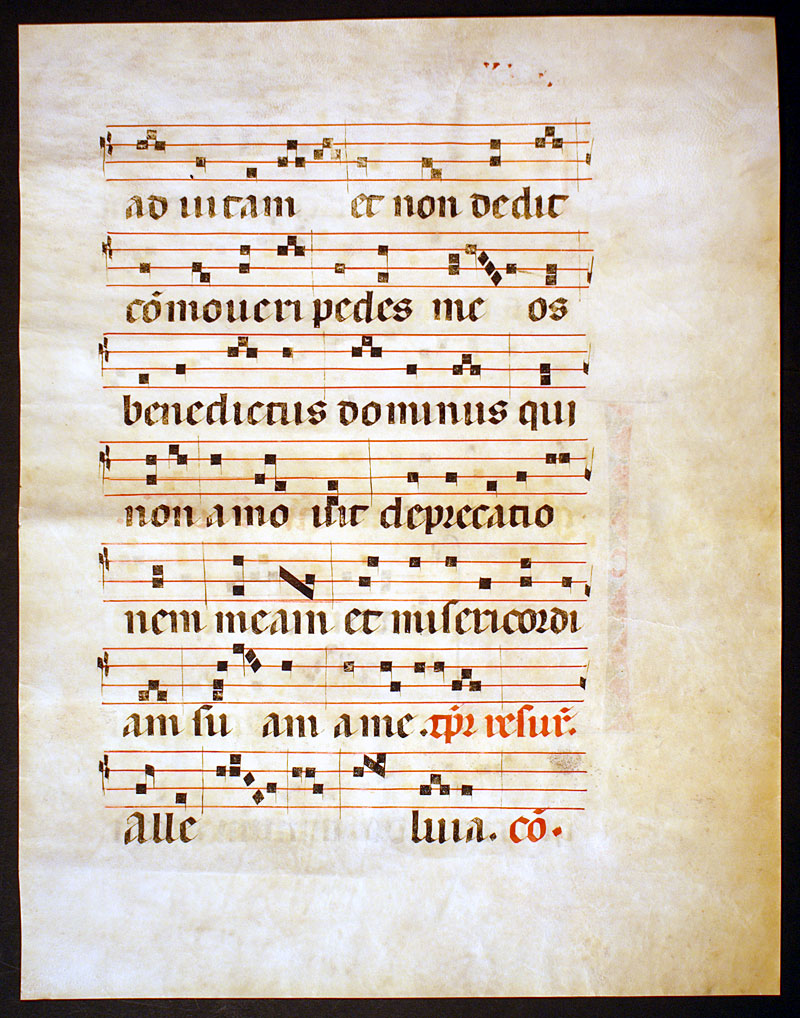 ad uitam et non dedit
cōmoueri pedes me os
benedictus dominus qui
non amo uit deprecatio
nem meam et misericordi
am su am a me. tp̄r resur̄.
alle luia. cō.